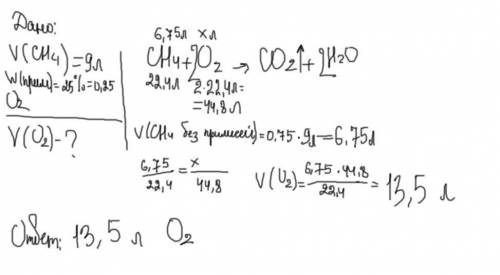 Дано:
V(CH4)=9л
W(прим)=25%=0,25
O2
V(O2)-?
6,75л x л
CH4+2O2→CO2↑+2H2O
22,4л 2·22,4л=
=44,8л
V(CH4 без примесей)=0,75·9л=6,75л
6,75/22,4=x/44,8 V(O2)=6,75·44,8/22,4=13,5 л
Ответ: 13,5 л O2